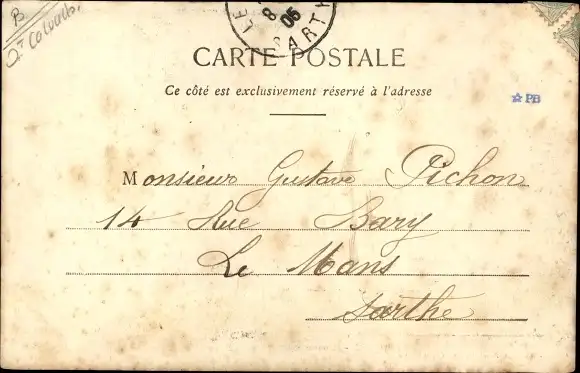 B
St Colomb.
LE
8
05
PARTY
CARTE POSTALE
Ce côté est exclusivement réservé à l'adresse
PB
Monsieur Gustave Pichon
14 Rue Bary
Le Mans
Sarthe